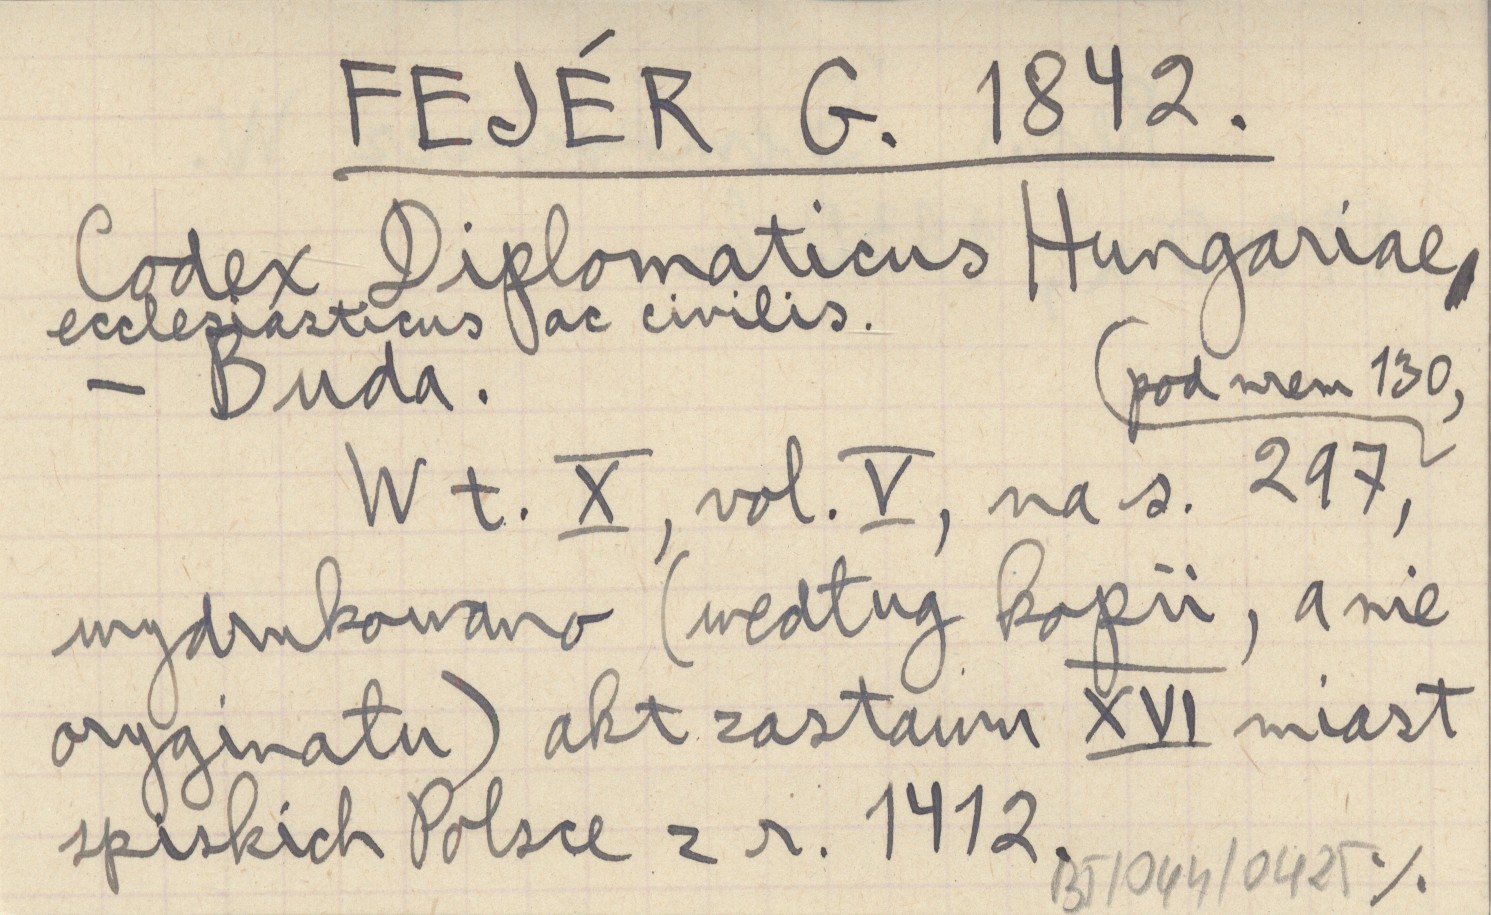 FEJÉR G. 1842.
Codex Diplomaticus Hungariae,
ecclesiasticus ac civilis.
– Buda.
(pod nrem 130,
W t. X, vol. V, na s. 297,
wydrukowano (według kopii, a nie
oryginału) akt zastawu XVI miast
spiskich Polsce z r. 1412.
BJ/044/0425 ./.